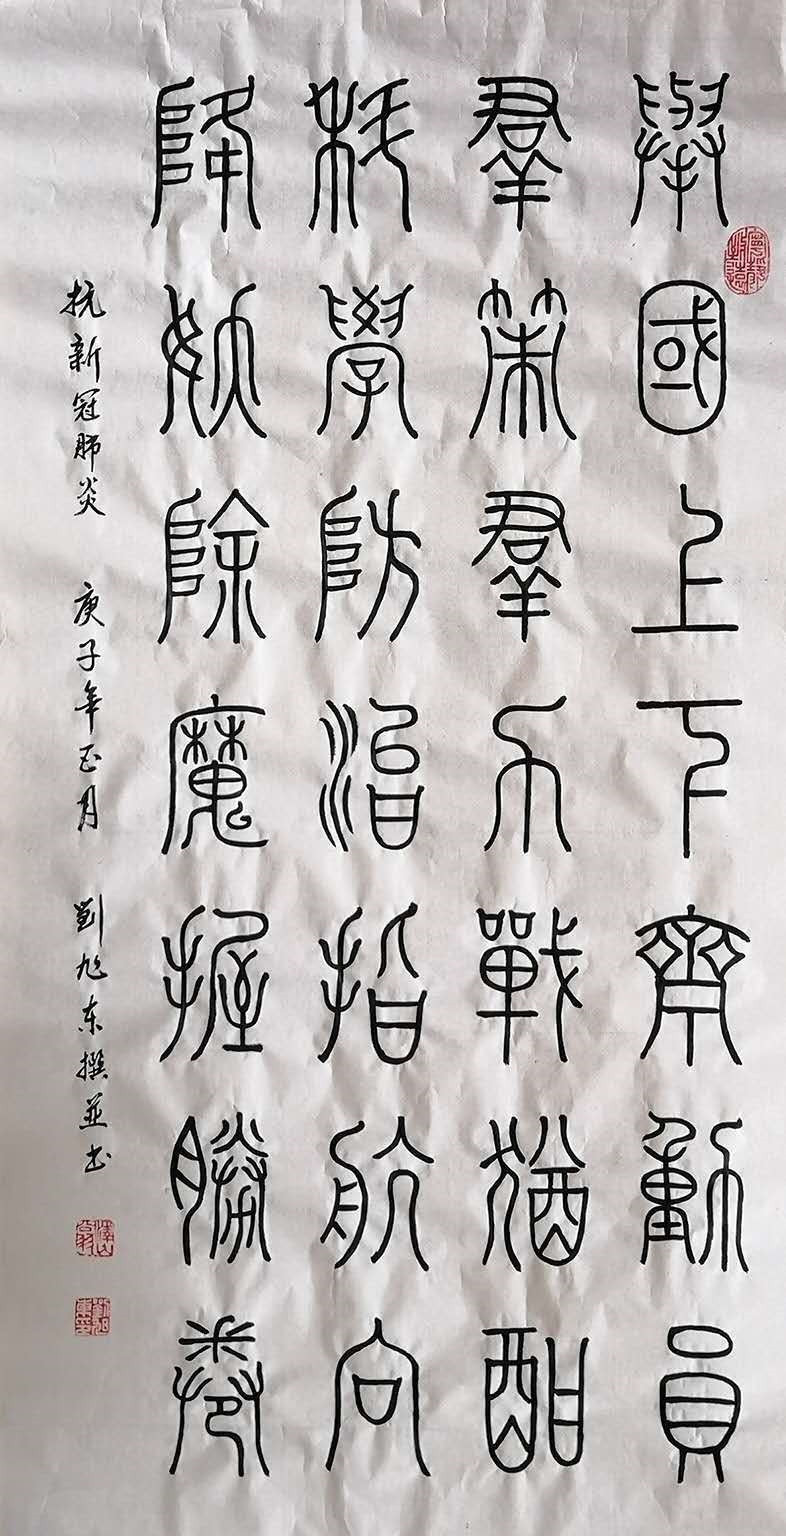 舉國上下齊動員
羣策羣力戰猶酣
科學防治指航向
降妖除魔握勝卷
抗新冠肺炎 庚子年正月 劉旭东撰並书
寧靜致遠
劉旭東印